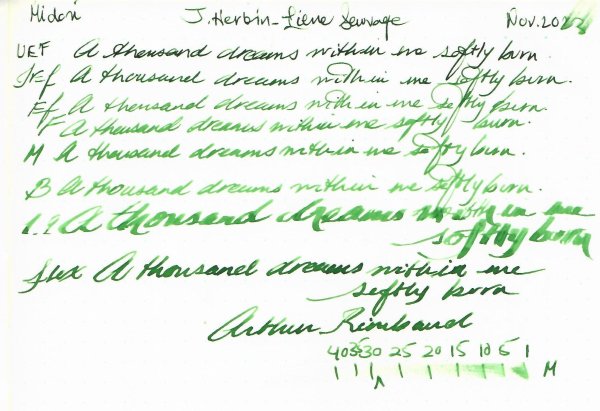 Midori J. Herbin - Lierre Sauvage Nov. 2022
UEF A thousand dreams within me softly burn
JEf A thousand dreams within me softly burn.
Ef A thousand dreams within me softly burn.
F A thousand dreams within me softly burn.
M A thousand dreams within me softly burn.
B A thousand dreams within me softly burn.
1.9 A thousand dreams within me
softly burn
flex A thousand dreams within me
softly born
Arthur Rimbaud
40 35 30 25 20 15 10 5 1
M